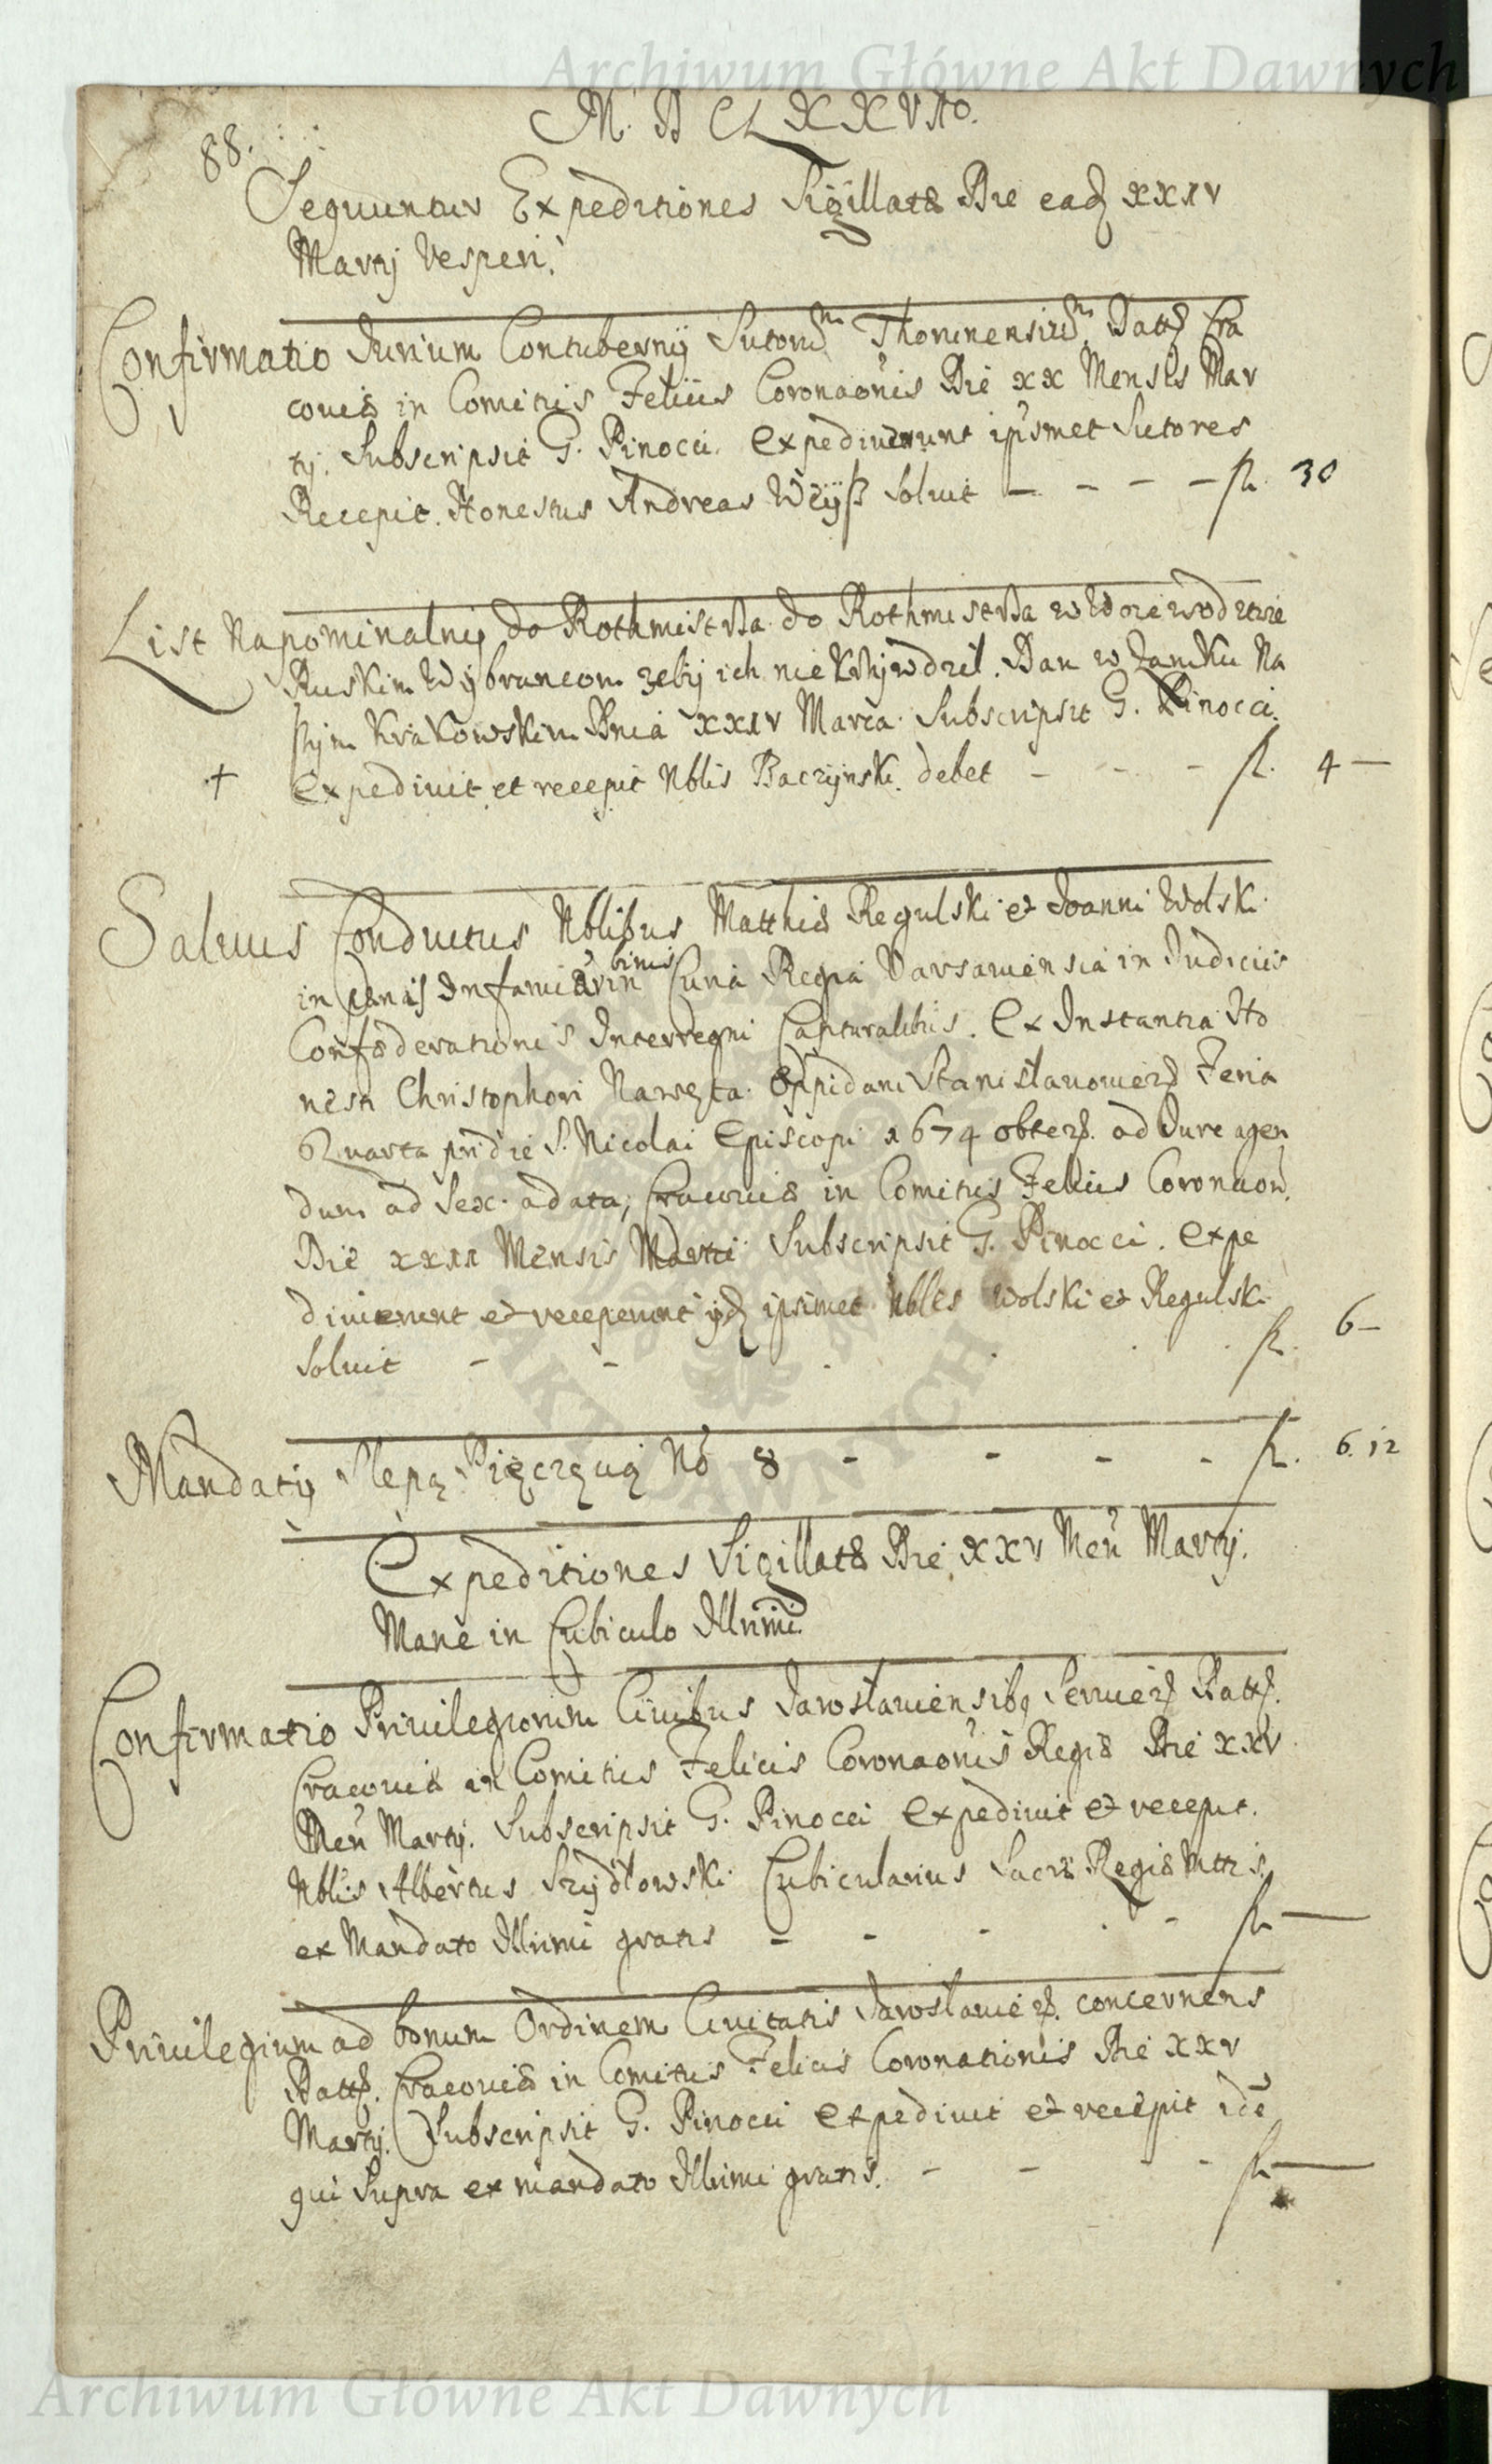 Archiwum Główne Akt Dawnych
M. D CLXXVIto.
88.
Sequuntur Expeditiones Sigillatæ Die ead XXIV
Martij Vesperi.
Confirmatio Jurium Contubernij Sutorum Thorunensium Datt Cra
coviæ in Comitiis Felicis Coronaonis Die XX Mensis Mar
tij. Subscripsit G. Pinocci. Expediverunt ipsimet Sutores
Recepit Honestus Andreas Weÿß Solvit - - - - fl. 30
List Napominalny do Rothmistrza do Rothmistrza w Woiewodztwie
Ruskim Wybrancom zeby ich nie Krzywdzil. Dan w Zamku Na
szym Krakowskim Dnia XXIV Marca. Subscripsit G. Pinocci.
+ Expedivit et recepit Nblis Baczynski. debet - - - fl. 4 —
Salvus Conductus Nblibus Matthiæ Regulski et Joanni Wolski
in pænis Infamiæ in binis Curia Regia Varsaviensia in Judiciis
Confæderationis Interregni Capturalibus. Ex Instantia Ho
nesti Christophori Oppidani Stanislavovien Feria
Quarta pridie S. Nicolai Episcopi 1674 obten. ad Jure agen
dum ad Sex. a data, Cracoviæ in Comitiis Felicis Coronaon.
Die XXII Mensis Martii Subscripsit G. Pinocci. Expe
diverunt et receperunt iid ipsimet Nbles Wolski et Regulski
Solvit - - - - - - fl. 6 —
Mandaty Slepą Pięczęcuą No 8 - - - - fl. 6. 12
Expeditiones Sigillatæ Die XXV Men Martij.
Mane in Cubiculo Illrimi
Confirmatio Privilegiorum Civibus Jaroslaviensibq Servien Datt.
Cracoviæ in Comitiis Felicis Coronaonis Regiæ Die XXV
Men Martij. Subscripsit G. Pinocci Expedivit et recepit.
Nblis Albertus Szydłowski Cubicularius Sacræ Regiæ Mttis.
ex Mandato Illrimi gratis - - - - - fl. —
Privilegium ad bonum Ordinem Civitatis Jaroslavien. concernens
Datt. Cracoviæ in Comitiis Felicis Coronationis Die XXV
Martij. Subscripsit G. Pinocci Expedivit et recepit ide
qui Supra ex mandato Illrimi gratis. - - - fl. —
AKT DAWNYCH
Archiwum Główne Akt Dawnych